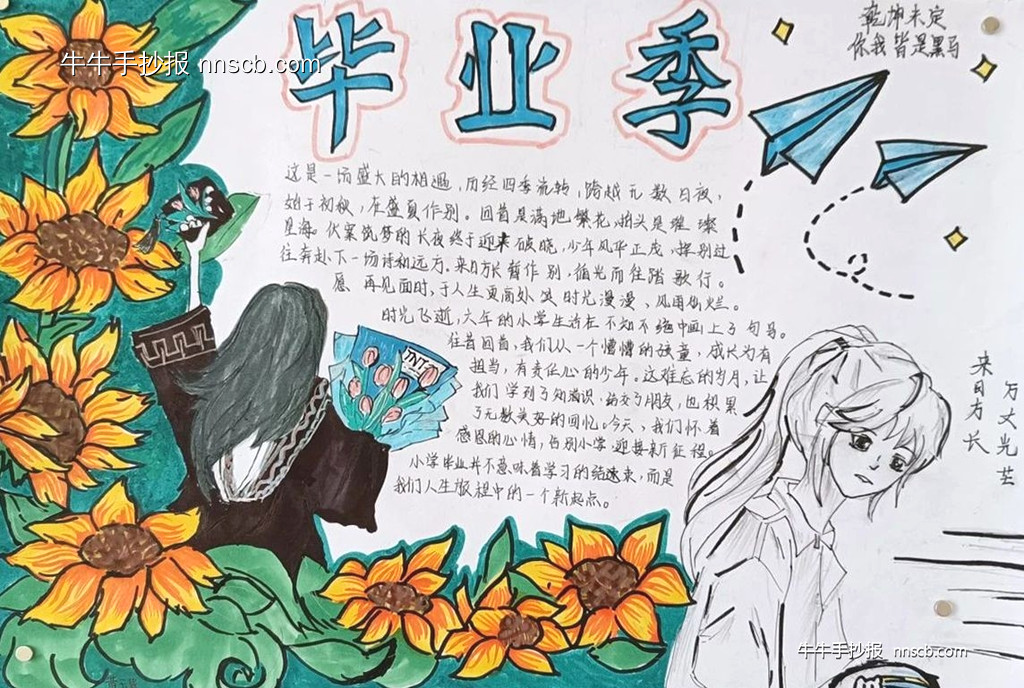 牛牛手抄报 nnscb.com
毕业季
乾坤未定
你我皆是黑马
这是一场盛大的相遇，历经四季流转，跨越无数日夜，
始于初秋，在盛夏作别。回首是满地繁花，抬头是璀璨
星海。伏案筑梦的长夜终于迎来破晓，少年风华正茂，挥别过
往奔赴下一场诗和远方。来日方长暂作别，循光而往踏歌行。
愿再见面时，于人生更高处 时光漫漫、风雨灿烂。
时光飞逝，六年的小学生活在不知不绝中画上了句号。
往昔回首，我们从一个懵懵的孩童，成长为有
担当，有责任心的少年。这难忘的岁月，让
我们学到了知识，结交了朋友，也积累
了无数美好的回忆。今天，我们怀着
感恩的心情，告别小学迎接新征程。
小学毕业并不意味着学习的结束，而是
我们人生旅程中的一个新起点。
TNT
来日方长
万丈光芒
牛牛手抄报 nnscb.com